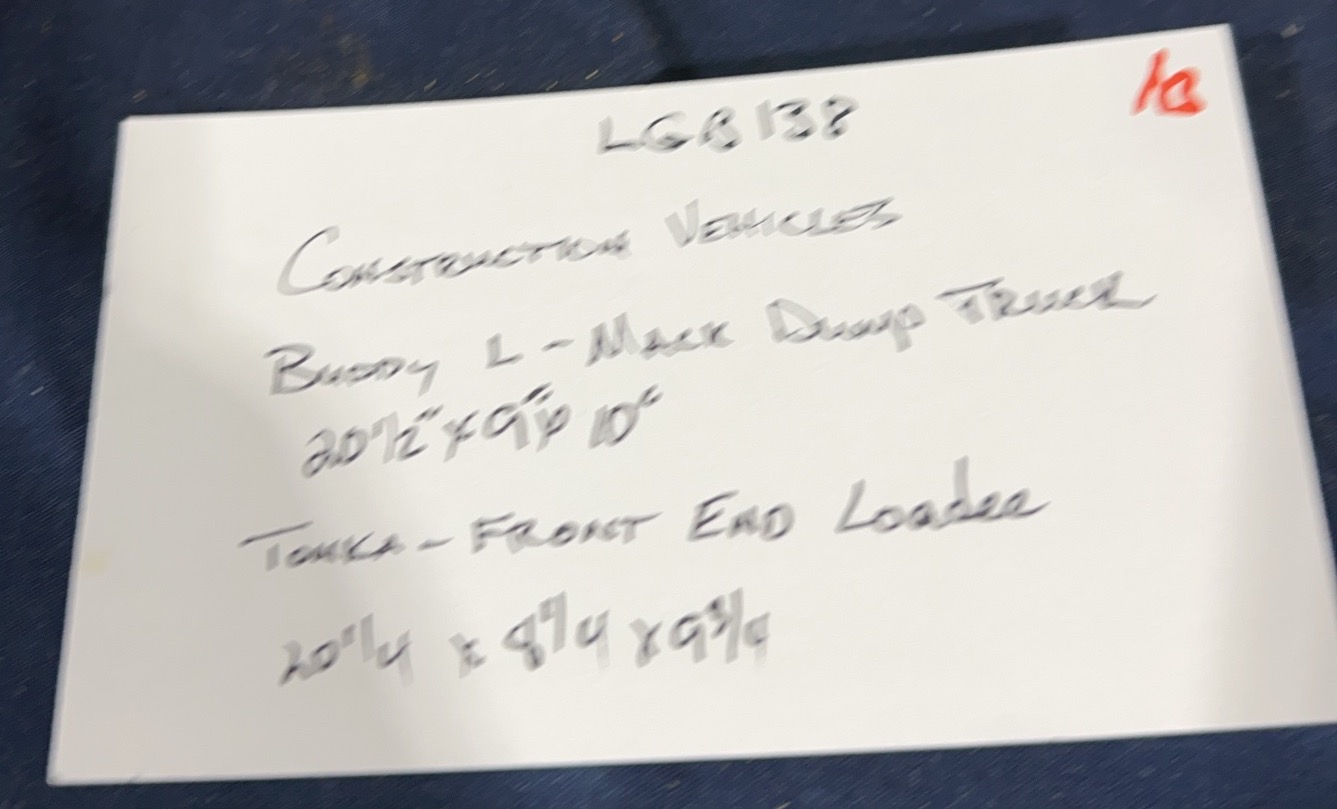 LGB138
Construction Vehicles
Buddy L - Mack Dump Truck
20 1/2" x 9" x 10"
Tonka - Front End Loader
20 1/4 x 8 1/4 x 9 3/4